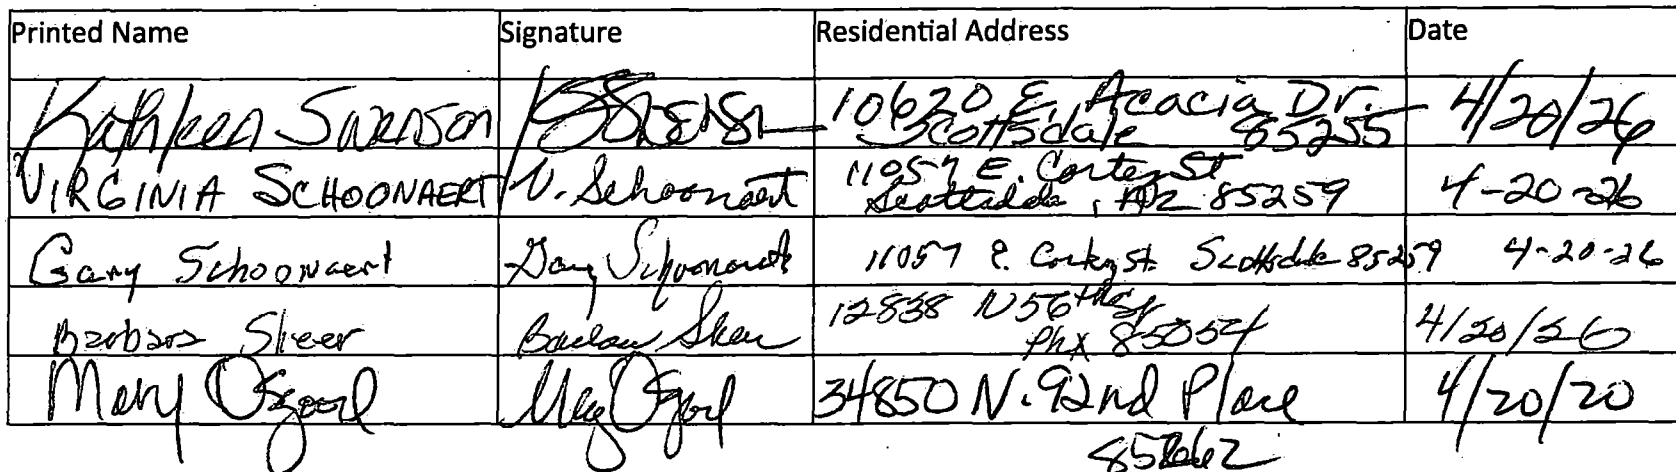 Printed Name Signature Residential Address Date
Kathleen Swenson KSwenson 10620 E. Acacia Dr. 4/20/26
Scottsdale 85255
VIRGINIA SCHOONAERT V. Schoonaert 11057 E. Cortez St 4-20-26
Scottsdale, AZ 85259
Gary Schoonaert Gary Schoonaert 11057 E. Cortez St. Scottsdale 85259 4-20-26
12838 N 56th
Barbara Sheer Barbara Sheer Phx 85054 4/20/26
Mary Osgood Mary Osgood 34850 N. 92nd Place 4/20/20
85262